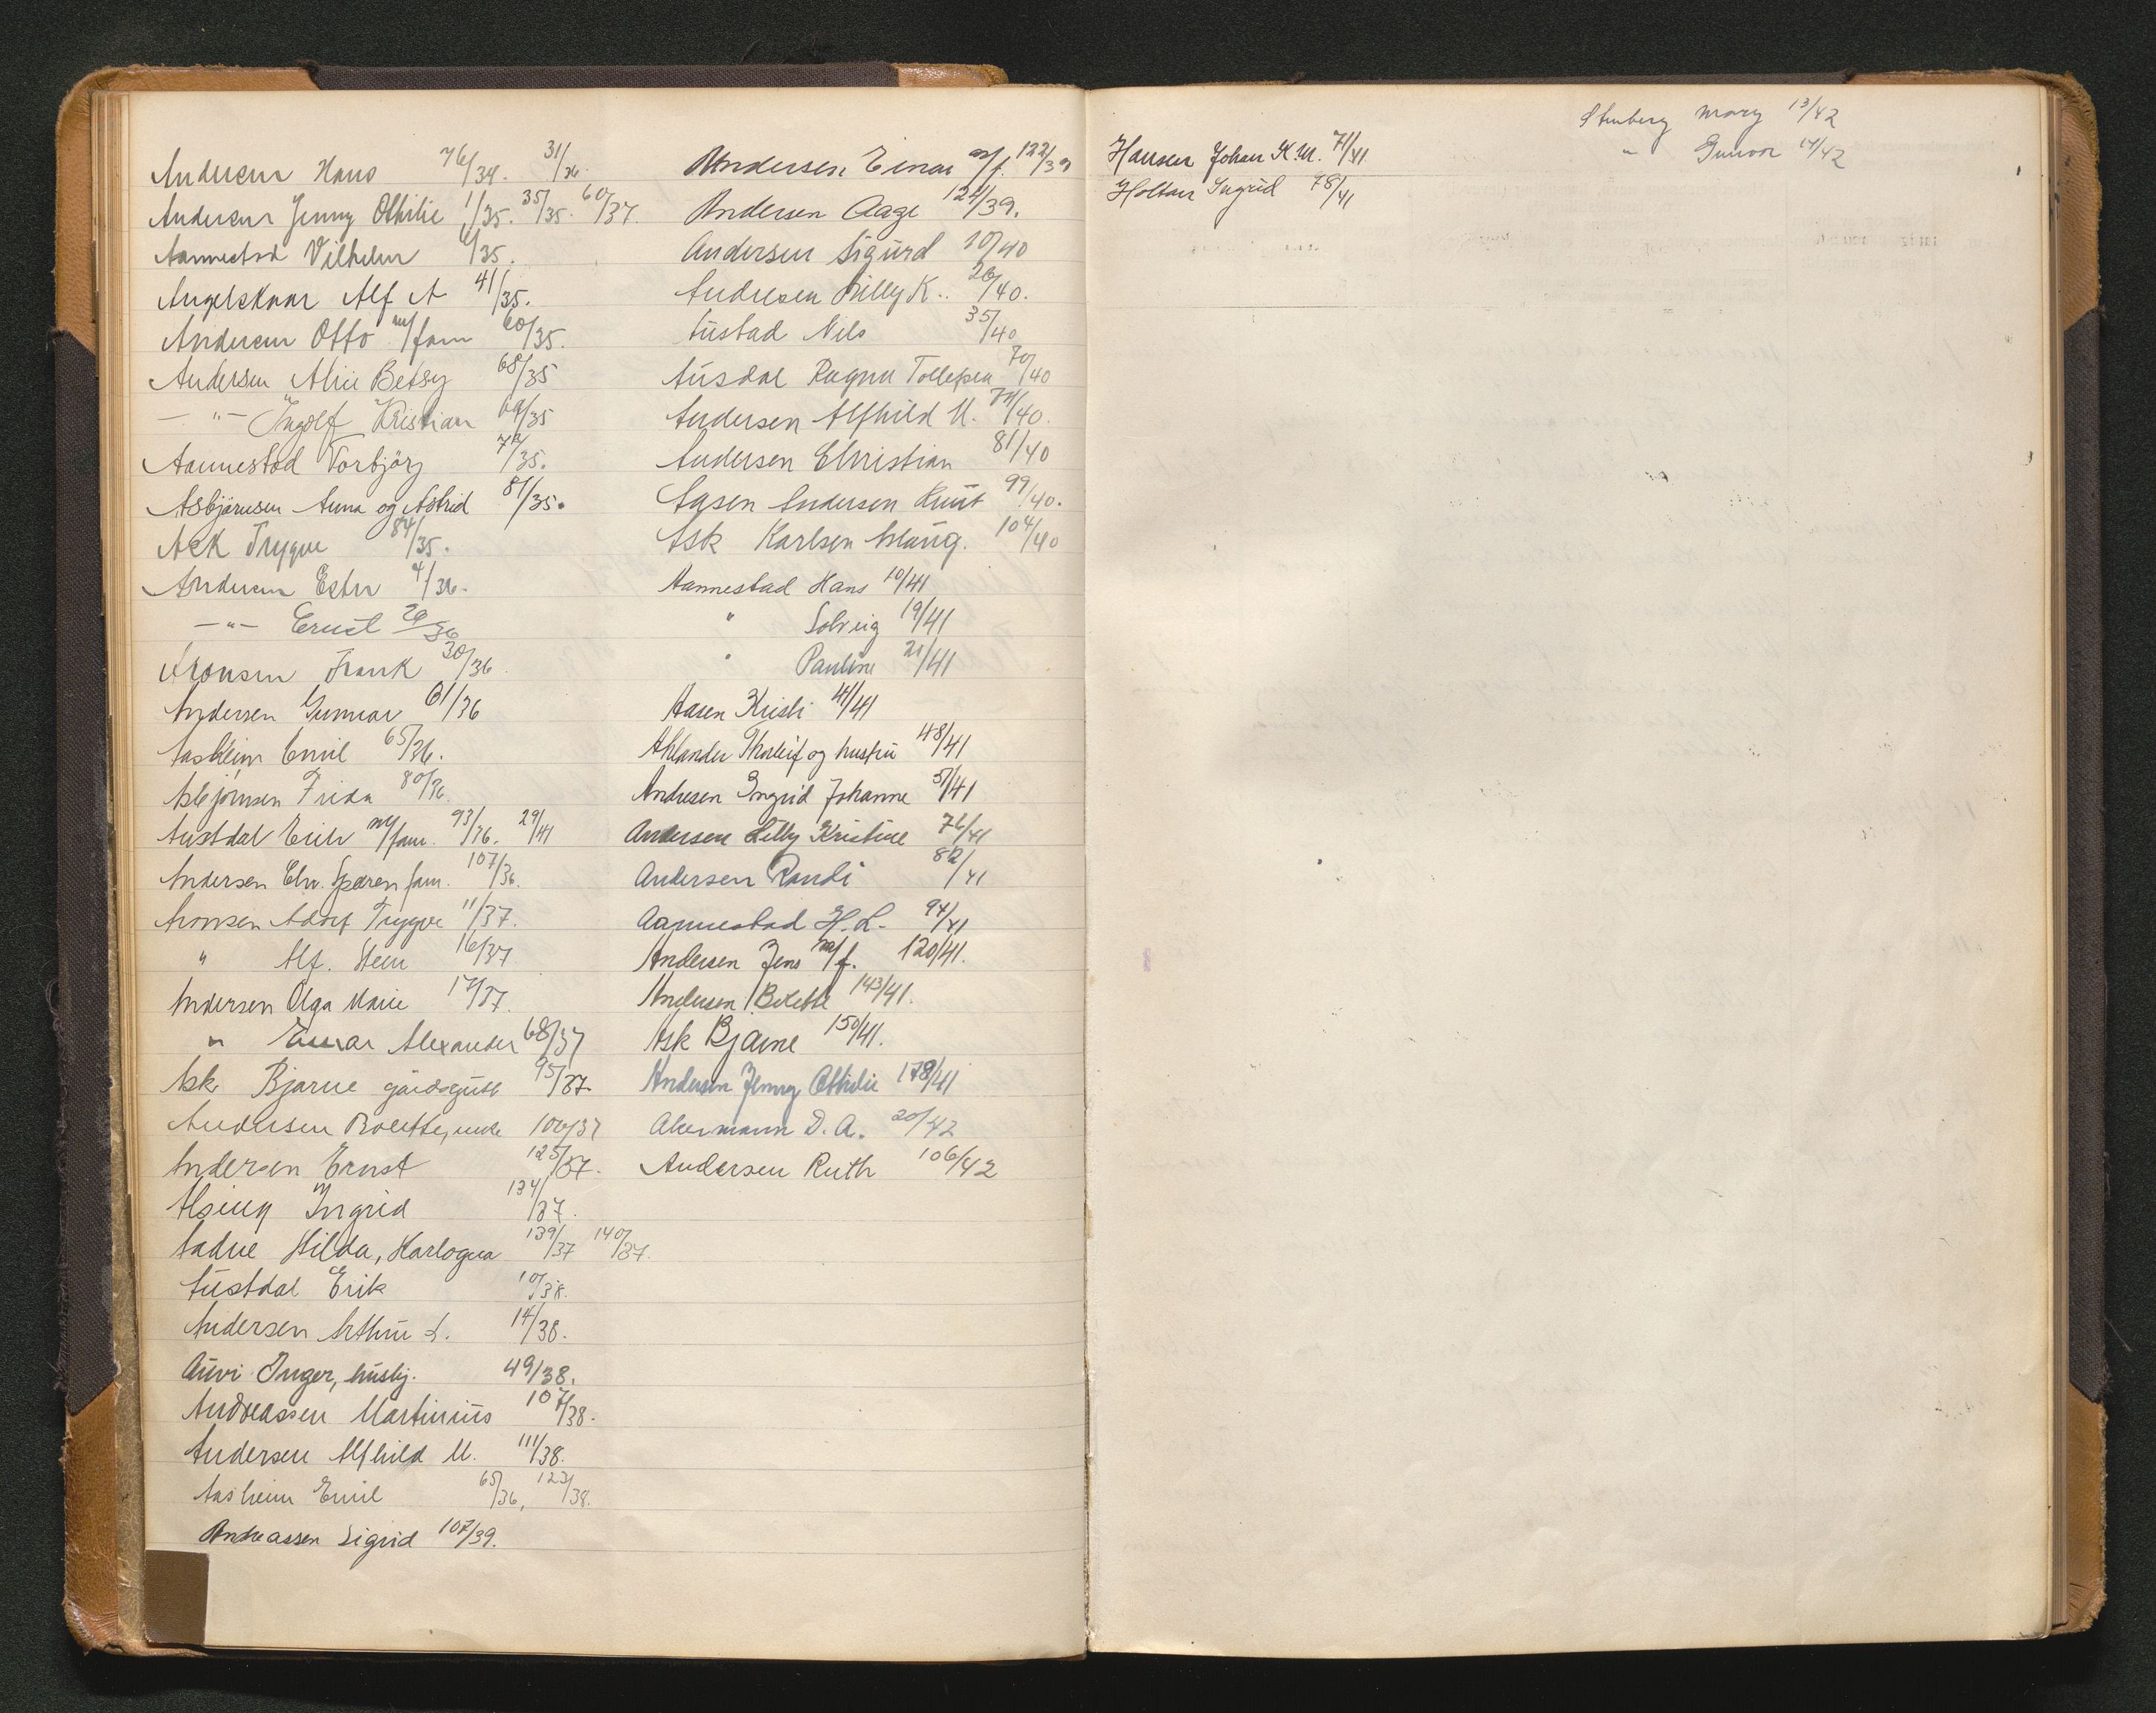 Andersen Hans 76/34. 31/36.
Andersen Jenny Othilie 1/35. 35/35. 60/37.
Aannestad Vilhelm /35.
Angelskaar Alf A 41/35.
Andersen Otto m/fam 60/35.
Andersen Alice Betsy 68/35
—"— Ingolf Kristian 69/35
Aannestad Torbjörg /35.
Asbjörnsen Anna og Astrid 81/35.
Ask Trygve 84/35.
Andersen Ester 4/36.
—"— Ernst 26/36
Aronsen Frank 30/36.
Andersen Gunnar 61/36
Aasheim Emil 65/36.
Asbjörnsen Frida 80/36.
Austdal Erik m/fam. 93/36. 29/41
Andersen Chr. fam. 107/36.
Aronsen Adolf Trygve 11/37.
" Alf. Stein 16/37.
Andersen Olga Marie 17/37.
" Einar Alexander 68/37
Ask Bjarne gårdsgutt 95/37.
Andersen Bolette, enke 100/37
Andersen Ernst 125/37.
Alsing Ingrid 134/37.
Aadne Hilda, Karlogna 139/37 140/37.
Austdal Erik 10/38.
Andersen Arthur L. 14/38.
Auvi Inger, hushj. 49/38.
Andreassen Martinius 107/38.
Andersen Alfhild M. 111/38.
Aasheim Emil 65/36, 123/38.
Andreassen Sigrid 107/39.
Andersen Einar m/f. 122/39
Andersen Aage 124/39.
Andersen Sigurd 10/40
Andresen Lilly K.. 26/40.
Austad Nils 35/40
Ausdal Ragna Tollefsen 70/40
Andersen Alfhild M. 74/40.
Andersen Christian 81/40
Aasen Andersen Knut 99/40.
Ask Karlsen Aslaug. 104/40
Aannestad Hans 10/41
" Solveig 19/41
" Pauline 21/41
Aasen Kristi 41/41
Ahlander Thorleif og hustru 48/41
Andresen Ingrid Johanne 51/41
Andersen Lilly Kristine 76/41
Andersen Randi 82/41
Aannestad H.L. 94/41
Andersen Jens m/f. 120/41.
Andersen Bolette 143/41.
Ask Bjarne 150/41.
Andersen Jenny Othilie 178/41
Akermann D. A. 20/42
Andersen Ruth 106/42
Hansen Johan K.M. 71/41
Holtan Ingrid 78/41
Stenberg Mary 13/42
" Gunvor 14/42